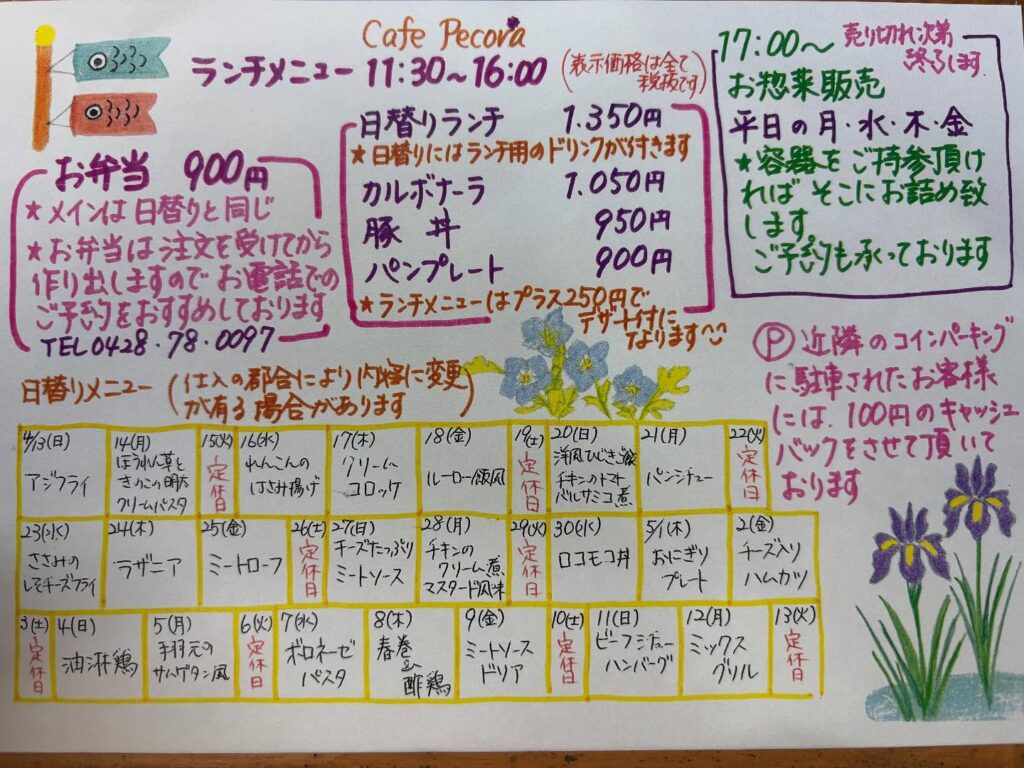 Cafe Pecora
ランチメニュー 11:30~16:00
(表示価格は全て
税抜です)
お弁当 900円
★メインは日替りと同じ
★お弁当は注文を受けてから
作り出しますのでお電話での
ご予約をおすすめしております
TEL0428・78・0097
日替りランチ 1.350円
★日替りにはランチ用のドリンクが付きます
カルボナーラ 1.050円
豚丼 950円
パンプレート 900円
★ランチメニューはプラス250円で
デザート付に
なります
17:00~ 売り切れ次第
終了します
お惣菜販売
平日の月・水・木・金
★容器をご持参頂け
ればそこにお詰め致
します。
ご予約も承っております
Ⓟ近隣のコインパーキング
に駐車されたお客様
には、100円のキャッシュ
バックをさせて頂いて
おります
日替りメニュー (仕入の都合により内容に変更
が有る場合があります)
4/13(日)
アジフライ
14(月)
ほうれん草と
きのこの明太
クリームパスタ
15(火)
定休日
16(水)
れんこんの
はさみ揚げ
17(木)
クリーム
コロッケ
18(金)
ルーロー飯風
19(土)
定休日
20(日)
洋風ひじきご飯
チキンのトマト
バルサミコ煮
21(月)
パンシチュー
22(火)
定休日
23(水)
ささみの
しそチーズフライ
24(木)
ラザニア
25(金)
ミートローフ
26(土)
定休日
27(日)
チーズたっぷり
ミートソース
28(月)
チキンの
クリーム煮
マスタード風味
29(火)
定休日
30(水)
ロコモコ丼
5/1(木)
おにぎり
プレート
2(金)
チーズ入り
ハムカツ
3(土)
定休日
4(日)
油淋鶏
5(月)
手羽元の
サムゲタン風
6(火)
定休日
7(水)
ボロネーゼ
パスタ
8(木)
春巻
&
酢鶏
9(金)
ミートソース
ドリア
10(土)
定休日
11(日)
ビーフシチュー
ハンバーグ
12(月)
ミックス
グリル
13(火)
定休日